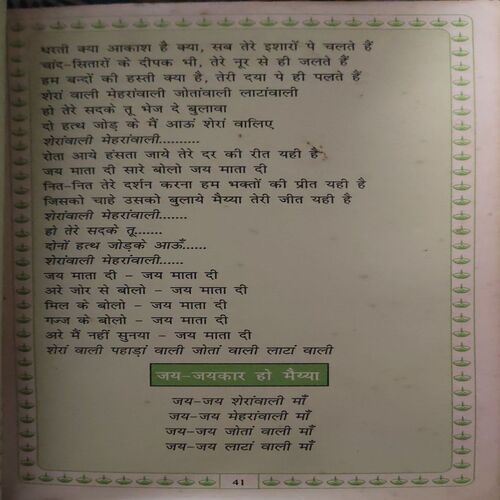 धरती क्या आकाश है क्या, सब तेरे इशारों पे चलते हैं
चांद-सितारों के दीपक भी, तेरे नूर से ही जलते हैं
हम बन्दों की हस्ती क्या है, तेरी दया पे ही पलते हैं
शेरां वाली मेहरांवाली जोतांवाली लाटांवाली
हो तेरे सदके तू भेज दे बुलावा
दो हत्थ जोड़ के मैं आऊं शेरां वालिए
शेरांवाली मेहरांवाली..........
रोता आये हंसता जाये तेरे दर की रीत यही है
जय माता दी सारे बोलो जय माता दी
नित-नित तेरे दर्शन करना हम भक्तों की प्रीत यही है
जिसको चाहे उसको बुलाये मैय्या तेरी जीत यही है
शेरांवाली मेहरांवाली.......
हो तेरे सदके तू.......
दोनों हत्थ जोड़के आऊँ......
शेरांवाली मेहरांवाली......
जय माता दी – जय माता दी
अरे जोर से बोलो – जय माता दी
मिल के बोलो – जय माता दी
गज्ज के बोलो – जय माता दी
अरे मैं नहीं सुनया – जय माता दी
शेरां वाली पहाड़ां वाली जोतां वाली लाटां वाली
जय-जयकार हो मैय्या
जय-जय शेरांवाली माँ
जय-जय मेहरांवाली माँ
जय-जय जोतां वाली माँ
जय-जय लाटां वाली माँ
41